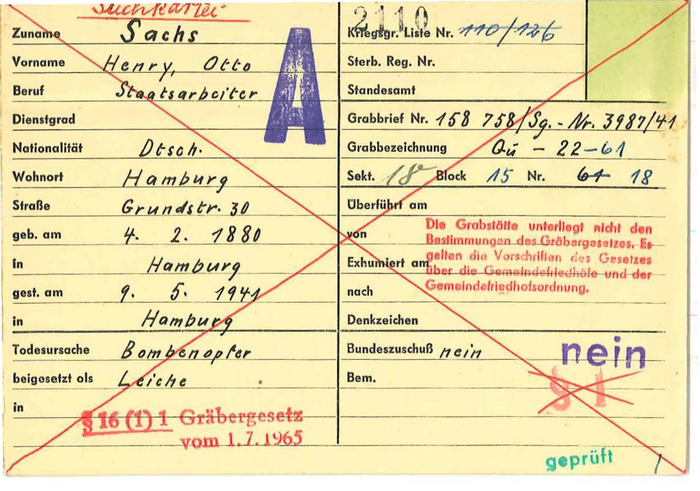 Suchkartei
2110
Zuname Sachs
Vorname Henry, Otto
Beruf Staatsarbeiter
Dienstgrad
Nationalität Dtsch.
Wohnort Hamburg
Straße Grundstr. 30
geb. am 4. 2. 1880
in Hamburg
gest. am 9. 5. 1941
in Hamburg
Todesursache Bombenopfer
beigesetzt als Leiche
in
§ 16 (1) 1 Gräbergesetz
vom 1.7.1965
A
Kriegsgr. Liste Nr. 110/126
Sterb. Reg. Nr.
Standesamt
Grabbrief Nr. 158 758/Sg.-Nr. 3987/41
Grabbezeichnung Qu - 22-61
Sekt. 18 Block 15 Nr. 61 18
Überführt am
von
Exhumiert am
nach
Die Grabstätte unterliegt nicht den
Bestimmungen des Gräbergesetzes. Es
gelten die Vorschriften des Gesetzes
über die Gemeindefriedhöfe und der
Gemeindefriedhofsordnung.
Denkzeichen
Bundeszuschuß nein
nein
Bem.
§ 1
geprüft